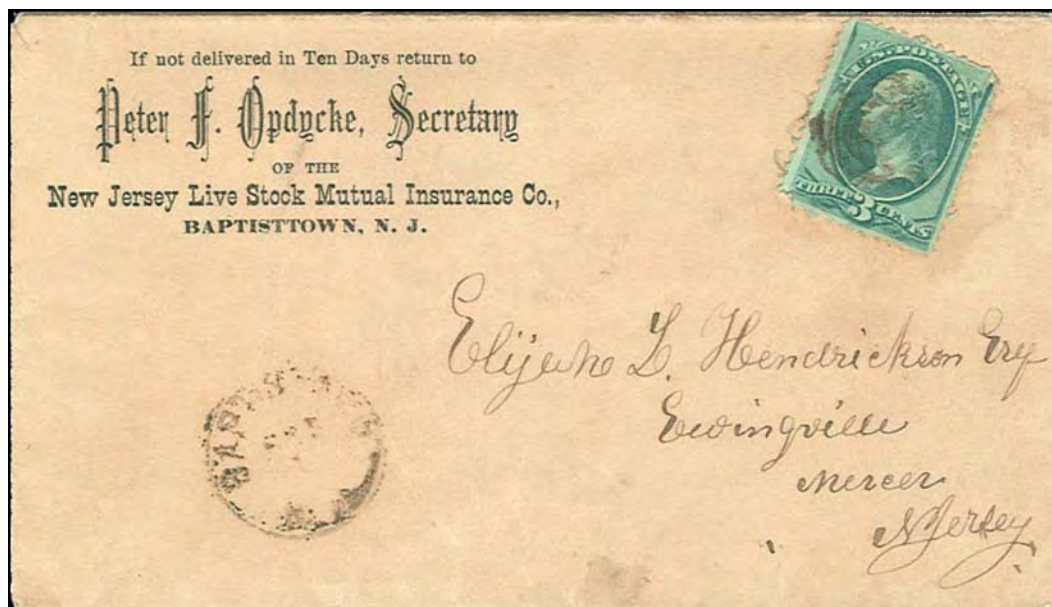 If not delivered in Ten Days return to
Peter F. Opdycke, Secretary
OF THE
New Jersey Live Stock Mutual Insurance Co.,
BAPTISTTOWN, N. J.
U.S. POSTAGE
THREE 3 CENTS
Elijah L. Hendrickson Esq
Ewingville
Mercer
N Jersey